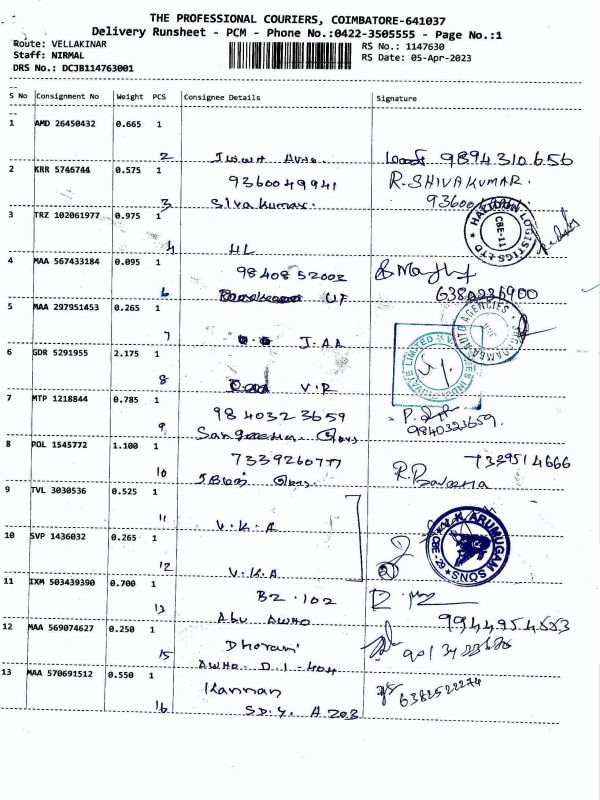 THE PROFESSIONAL COURIERS, COIMBATORE-641037
Delivery Runsheet - PCM - Phone No.:0422-3505555 - Page No.:1
Route: VELLAKINAR
Staff: NIRMAL
DRS No.: DCJB114763001
RS No.: 1147630
RS Date: 05-Apr-2023
S No Consignment No Weight PCS Consignee Details Signature
1 AMD 26450432 0.665 1
2 9894310656
2 KRR 5746744 0.575 1 9360049941 R.SHIVAKUMAR.
3 Siva kumar. 93600
HARIHAR LOGISTICS LTD CBE-11
3 TRZ 102061977 0.975 1
4 HL
4 MAA 567433184 0.095 1 9840852002
6 UF 6380236900
5 MAA 297951453 0.265 1
AUTO AGENCIES
7 J.A.A
PRIVATE LIMITED
6 GDR 5291955 2.175 1
8 V.R
7 MTP 1218844 0.785 1 9840323659
9 9840323659.
8 POL 1545772 1.100 1 7339260777 7339514666
10
9 TVL 3030536 0.525 1
11 V.K.A
V.K ARUMUGAM SONS CBE-29
10 SVP 1436032 0.265 1
12 V.K.A
11 IXM 503439390 0.700 1 B2.102
13 Abu AWHO
12 MAA 569074627 0.250 1 Dharani
15 AWHO-D.1-404
13 MAA 570691512 0.550 1 Kannan 6382522274
16 SD.Y. A 203